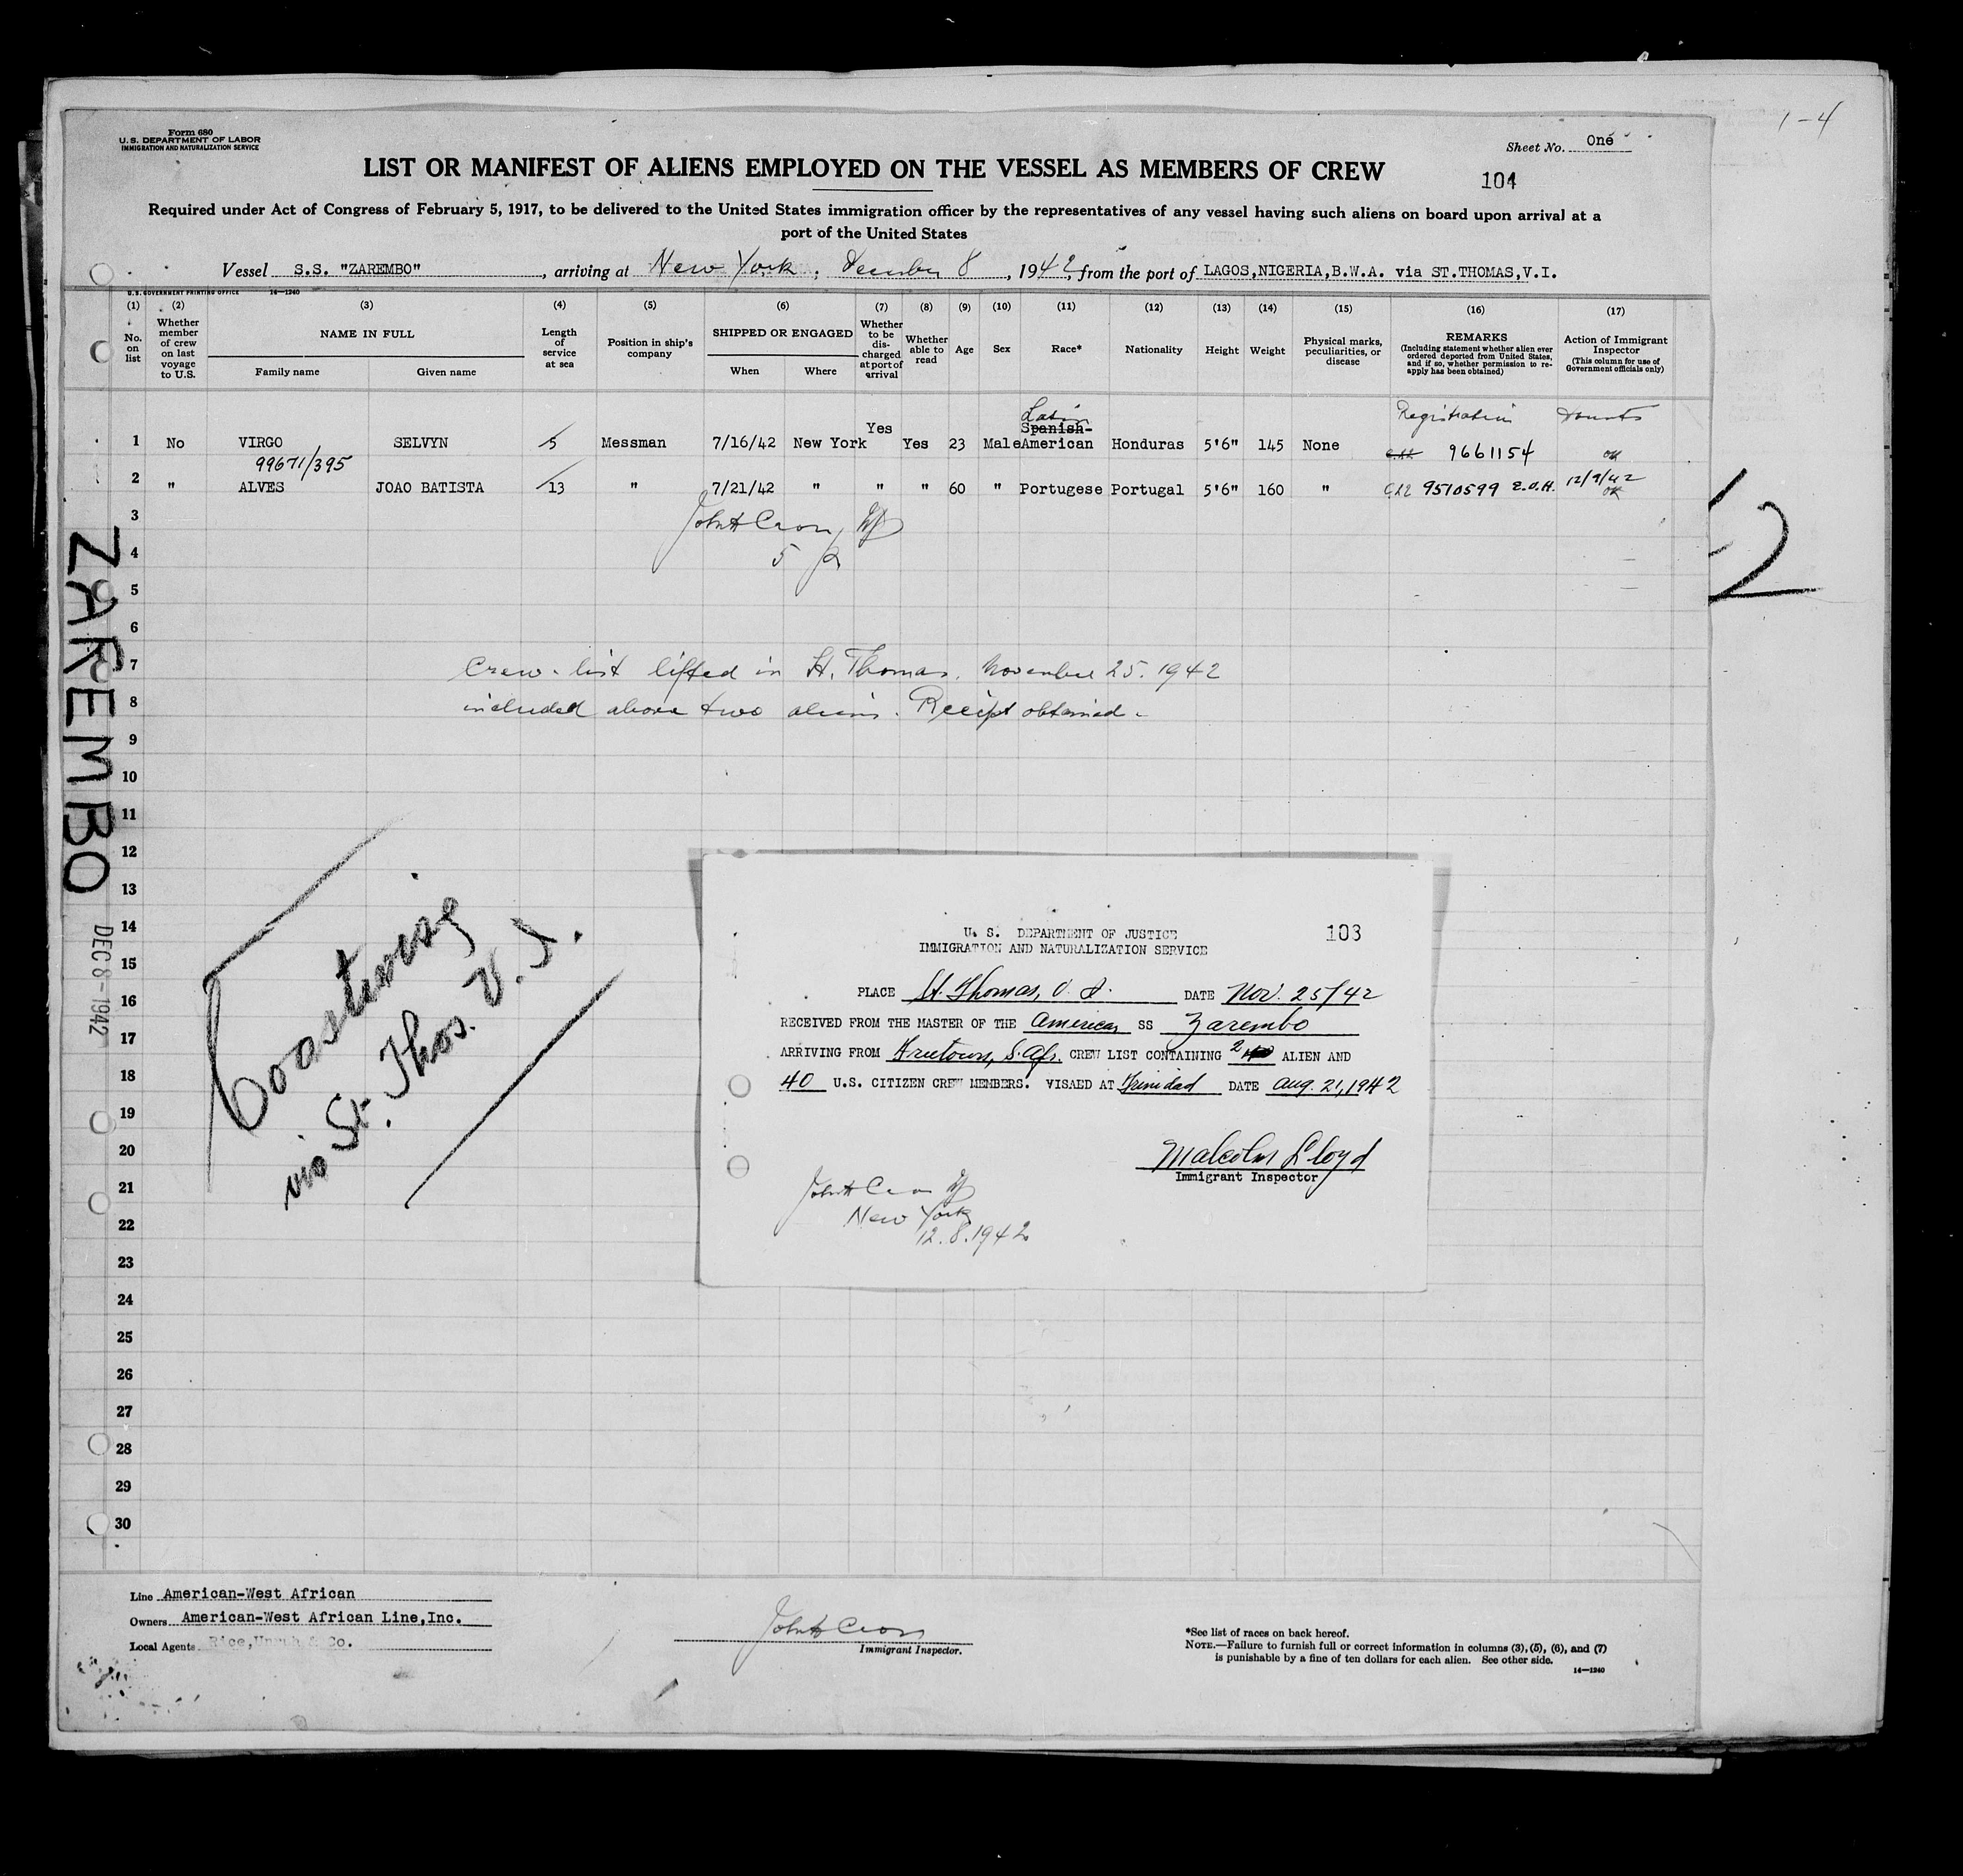 1-4
Form 680
U. S. DEPARTMENT OF LABOR
IMMIGRATION AND NATURALIZATION SERVICE
Sheet No. One
LIST OR MANIFEST OF ALIENS EMPLOYED ON THE VESSEL AS MEMBERS OF CREW
104
Required under Act of Congress of February 5, 1917, to be delivered to the United States immigration officer by the representatives of any vessel having such aliens on board upon arrival at a
port of the United States
Vessel S.S. "ZAREMBO", arriving at New York, December 8, 1942, from the port of LAGOS,NIGERIA,B.W.A. via ST.THOMAS,V.I.
U.S. GOVERNMENT PRINTING OFFICE 14—1240
(1) (2) (3) (4) (5) (6) (7) (8) (9) (10) (11) (12) (13) (14) (15) (16) (17)
No. on list
Whether member of crew on last voyage to U.S.
NAME IN FULL
Family name Given name
Length of service at sea
Position in ship's company
SHIPPED OR ENGAGED
When Where
Whether to be discharged at port of arrival
Whether able to read
Age
Sex
Race*
Nationality
Height
Weight
Physical marks, peculiarities, or disease
REMARKS
(Including statement whether alien ever ordered deported from United States, and if so, whether permission to reapply has been obtained)
Action of Immigrant Inspector
(This column for use of Government officials only)
Latin Registration
Yes Spanish-
1 No VIRGO SELVYN 5 Messman 7/16/42 New York Yes 23 Male American Honduras 5'6" 145 None 9661154 OK
99671/395
2 " ALVES JOAO BATISTA 13 " 7/21/42 " " " 60 " Portugese Portugal 5'6" 160 " 9510599 E.O.H. 12/9/42 OK
3
John H Cron
4
5
6
7 Crew list lifted in St. Thomas, November 25. 1942
8 included above two aliens. Receipt obtained.
9
10
11
12
13
14
15
16
17
18
19
20
21
22
23
24
25
26
27
28
29
30
ZAREMBO
DEC 8-1942
12
Coastwise
via St. Thos. V.I.
U. S. DEPARTMENT OF JUSTICE
103
IMMIGRATION AND NATURALIZATION SERVICE
PLACE St. Thomas, V. I. DATE Nov. 25/42
RECEIVED FROM THE MASTER OF THE American SS Zarembo
ARRIVING FROM Freetown, S. Afr. CREW LIST CONTAINING 2 ALIEN AND
40 U.S. CITIZEN CREW MEMBERS. VISAED AT Trinidad DATE Aug. 21, 1942
Malcolm Lloyd
Immigrant Inspector
John H Cron
New York
12.8.1942
Line American-West African
Owners American-West African Line,Inc.
Local Agents Rice,Unruh & Co.
John H Cron
Immigrant Inspector.
*See list of races on back hereof.
NOTE.—Failure to furnish full or correct information in columns (3), (5), (6), and (7)
is punishable by a fine of ten dollars for each alien. See other side.
14—1240